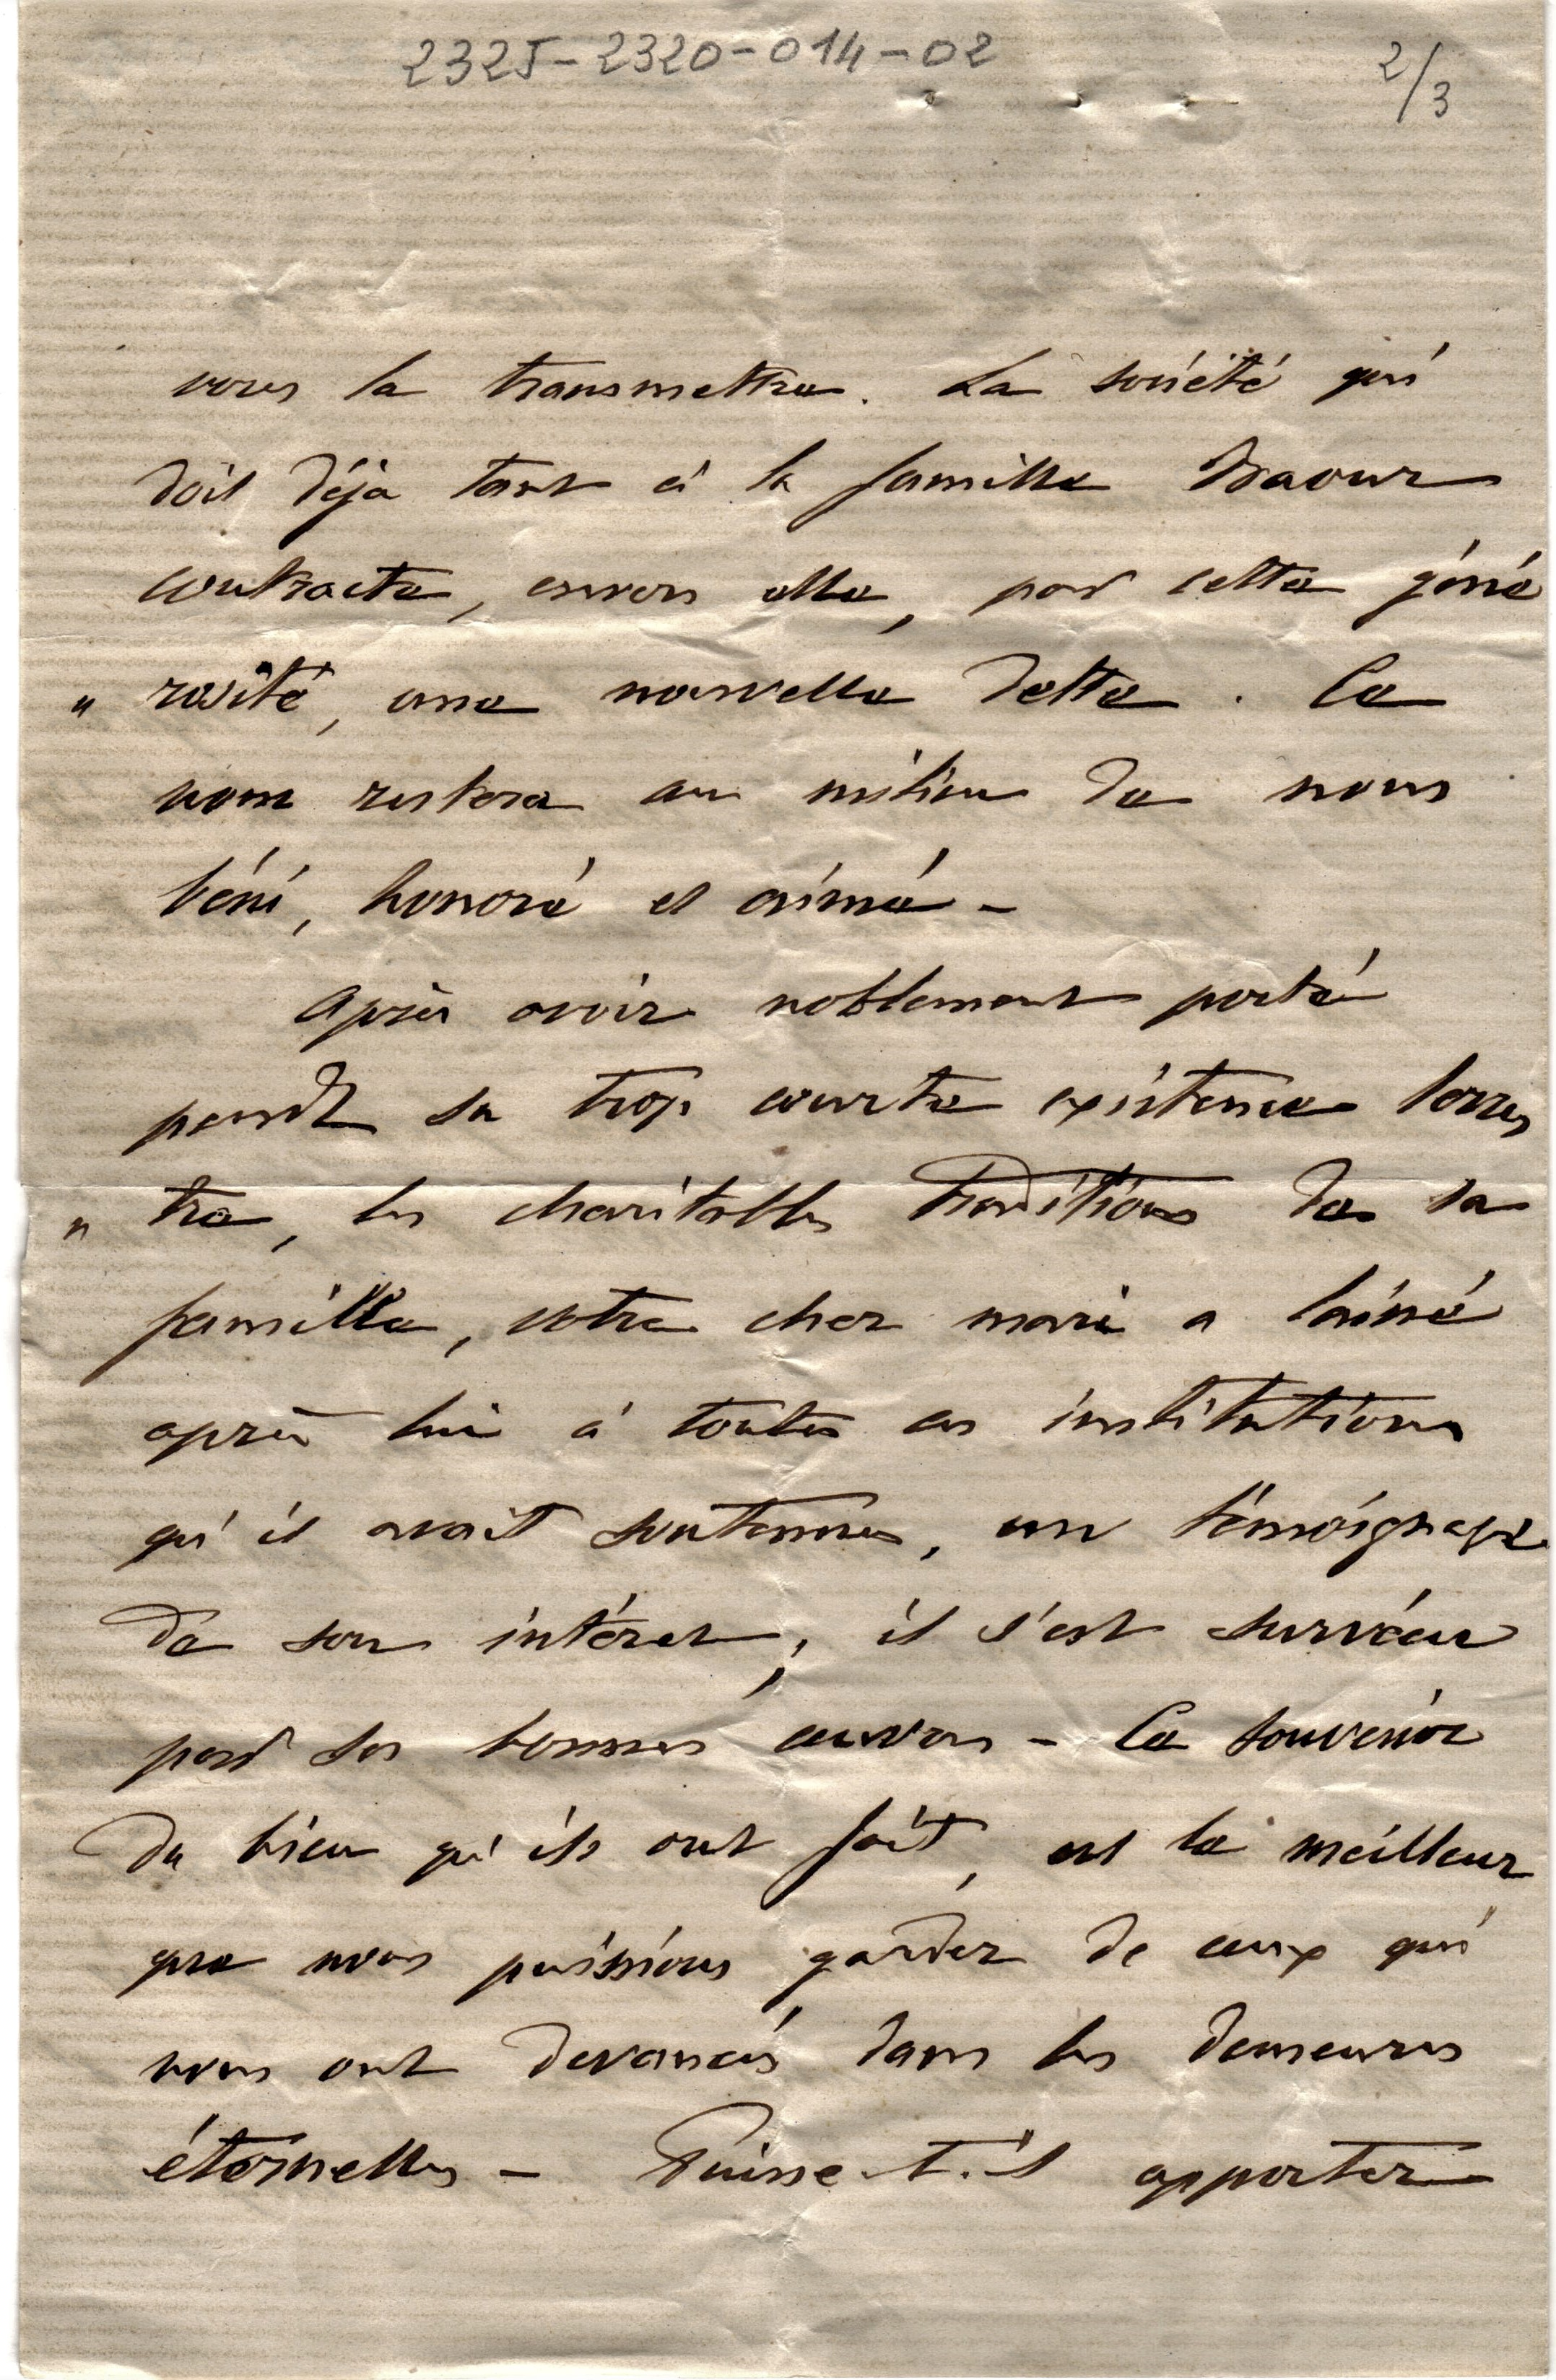 2325-2320-014-02
2/3
vous la transmettre. La société qui
doit déjà tant à la famille
contracte, envers elle, par cette géné
" rosité, une nouvelle dette. Ce
nom restera au milieu de nous
béni, honoré et aimé -
Après avoir noblement porté
pendt sa trop courte existence terres
" tre, les charitables traditions de sa
famille, votre cher mari a laissé
après lui à toutes ces institutions
qu'il avait soutenues, un témoignage
de son intéret ; il s'est survécu
par ses bonnes œuvres - Ce souvenir
du bien qu'ils ont fait, est le meilleur
que nous puissions garder de ceux qui
nous ont devancés dans les demeures
éternelles - Puisse-t-il apporter